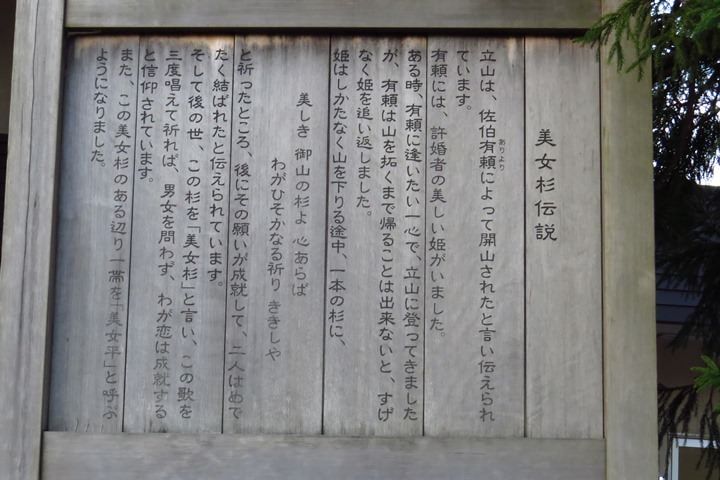 美女杉伝説
立山は、佐伯有頼によって開山されたと言い伝えられ
ありより
ています。
有頼には、許婚者の美しい姫がいました。
ある時、有頼に逢いたい一心で、立山に登ってきました
が、有頼は山を拓くまで帰ることは出来ないと、すげ
なく姫を追い返しました。
姫はしかたなく山を下りる途中、一本の杉に、
美しき 御山の杉よ 心あらば
わがひそかなる祈り ききしや
と祈ったところ、後にその願いが成就して、二人はめで
たく結ばれたと伝えられています。
そして後の世、この杉を「美女杉」と言い、この歌を
三度唱えて祈れば、男女を問わず、わが恋は成就する
と信仰されています。
また、この美女杉のある辺り一帯を「美女平」と呼ぶ
ようになりました。